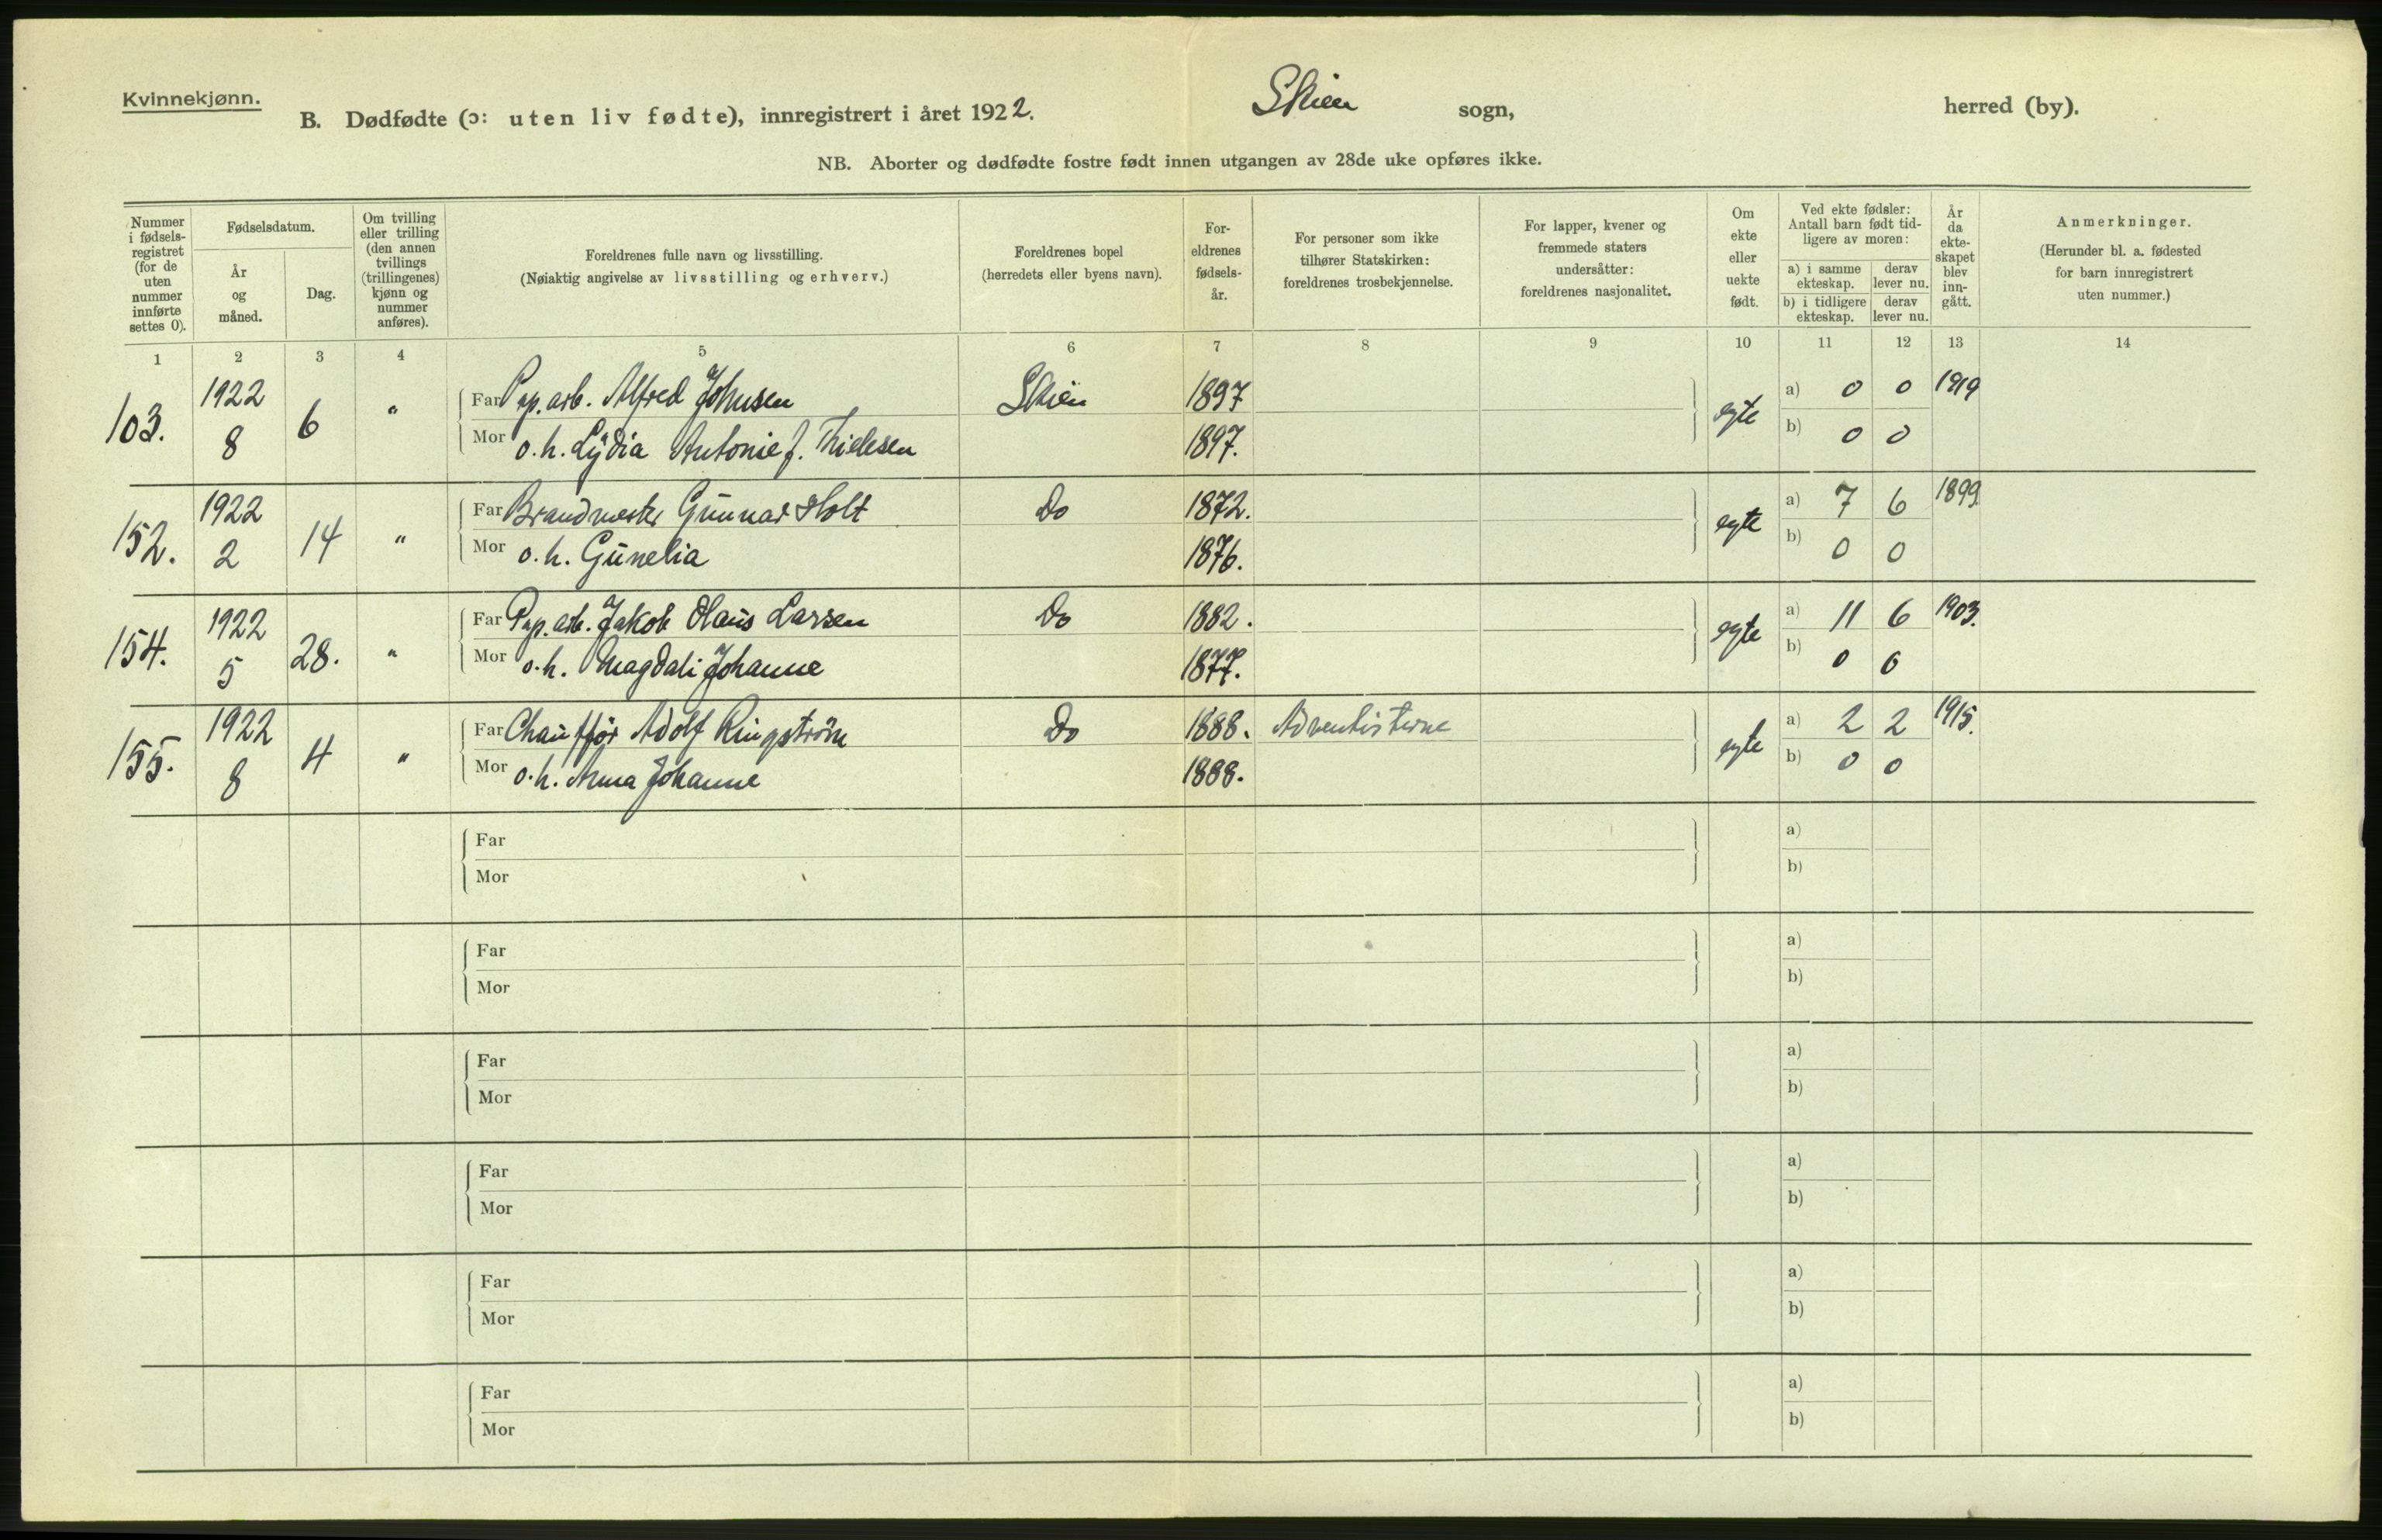 Kvinnekjønn.
B. Dødfødte (ɔ: uten liv fødte), innregistrert i året 1922. Skien sogn, herred (by).
NB. Aborter og dødfødte fostre født innen utgangen av 28de uke opføres ikke.
Nummer i fødsels-registret (for de uten nummer innførte settes 0).
Fødselsdatum.
År og måned.
Dag.
Om tvilling eller trilling (den annen tvillings (trillingenes) kjønn og nummer anføres).
Foreldrenes fulle navn og livsstilling.
(Nøiaktig angivelse av livsstilling og erhverv.)
Foreldrenes bopel (herredets eller byens navn).
For-eldrenes fødsels-år.
For personer som ikke tilhører Statskirken: foreldrenes trosbekjennelse.
For lapper, kvener og fremmede staters undersåtter: foreldrenes nasjonalitet.
Om ekte eller uekte født.
Ved ekte fødsler: Antall barn født tid-ligere av moren:
a) i samme ekteskap. derav lever nu.
b) i tidligere ekteskap. derav lever nu.
År da ekte-skapet blev inn-gått.
Anmerkninger.
(Herunder bl. a. fødested for barn innregistrert uten nummer.)
1 2 3 4 5 6 7 8 9 10 11 12 13 14
103. 1922 8 6 " Far Pap. arb. Alfred Johnsen Skien 1897 egte a) 0 0 1919
Mor o. h. Lydia Antonie f. Thielesen 1897. b) 0 0
152. 1922 2 14 " Far Brandmester Gunnar Holt Do 1872. egte a) 7 6 1899.
Mor o. h. Gunelia 1876. b) 0 0
154. 1922 5 28. " Far Pap. arb. Jakob Olaus Larsen Do 1882. egte a) 11 6 1903.
Mor o. h. Magdali Johanne 1877. b) 0 0
155. 1922 8 4 " Far Chauffør Adolf Ringstrøm Do 1888. Adventisterne egte a) 2 2 1915.
Mor o. h. Anna Johanne 1888. b) 0 0
Far a)
Mor b)
Far a)
Mor b)
Far a)
Mor b)
Far a)
Mor b)
Far a)
Mor b)
Far a)
Mor b)